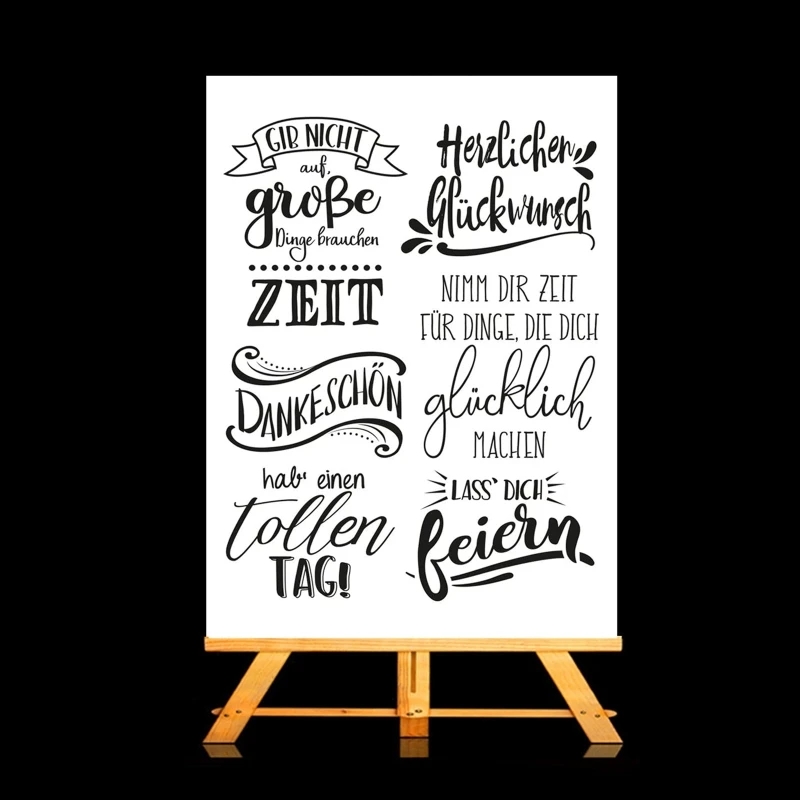 GIB NICHT
auf,
große
Dinge brauchen
ZEIT
DANKESCHÖN
hab' einen
tollen
TAG!
Herzlichen
Glückwunsch
NIMM DIR ZEIT
FÜR DINGE, DIE DICH
glücklich
MACHEN
LASS' DICH
feiern